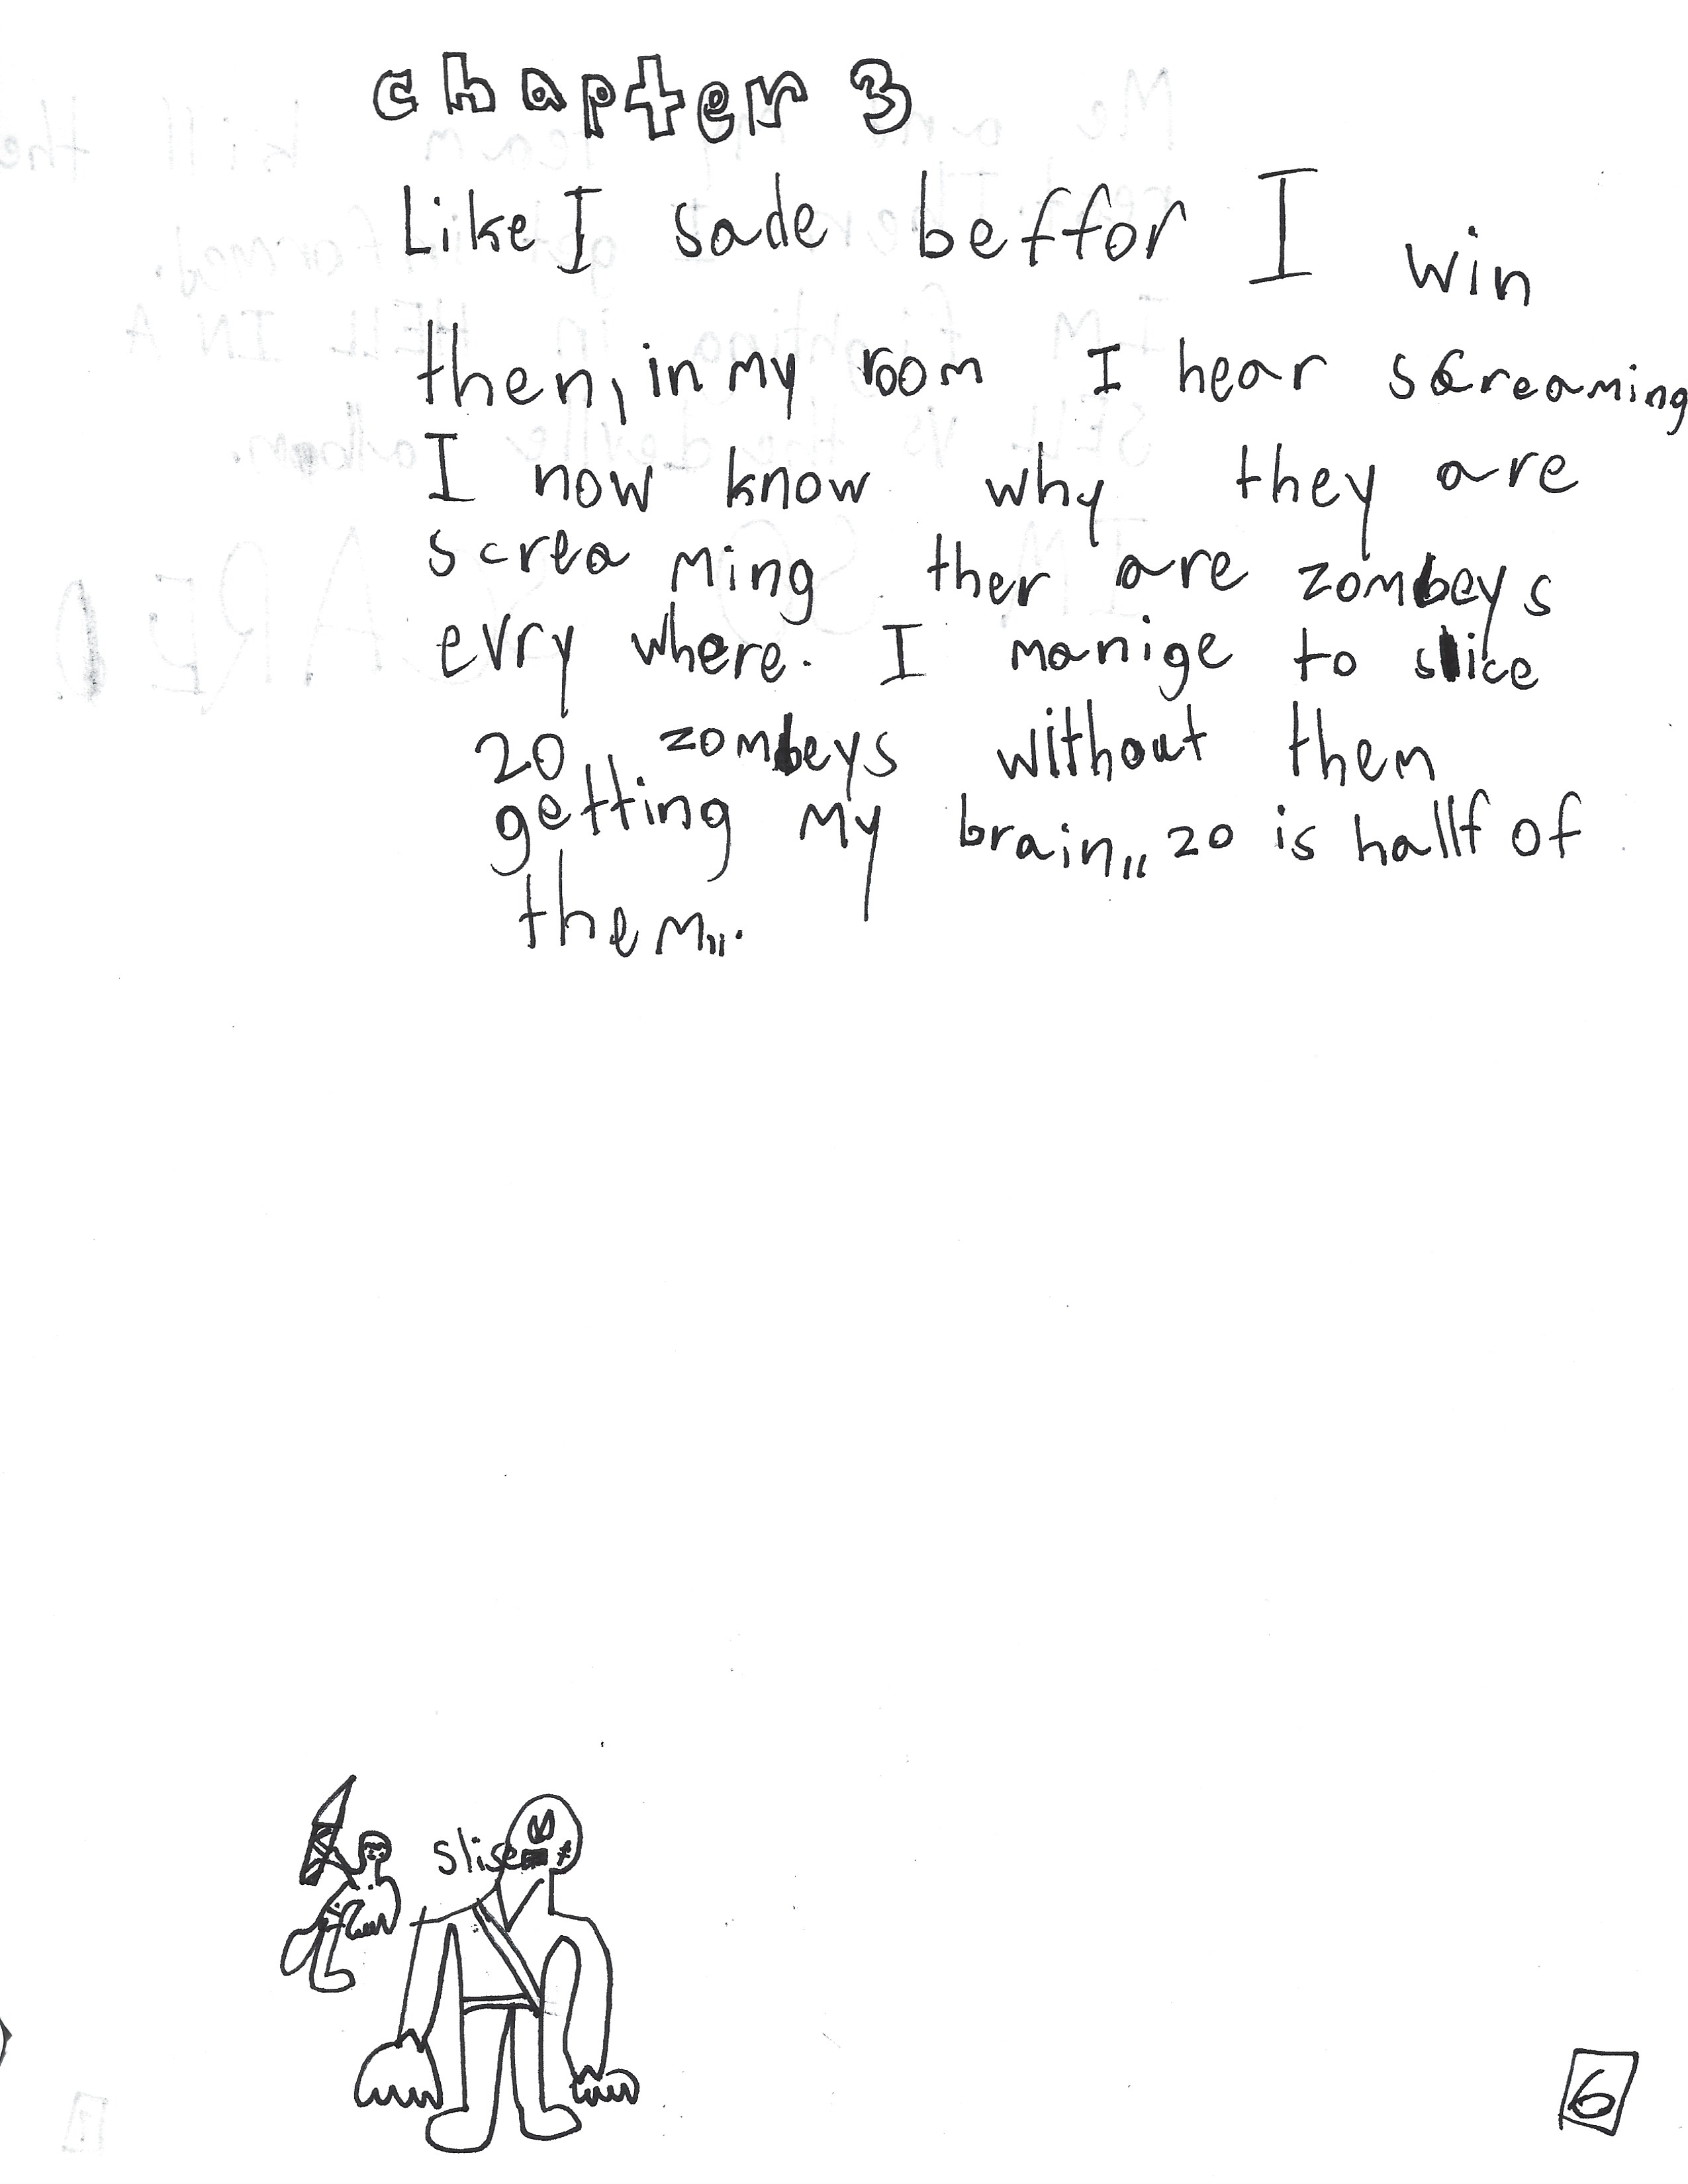 chapter 3
Like I sade beffor I win
then, in my room I hear screaming
I now know why they are
screa ming ther are zombeys
evry where. I manige to slice
20 zombeys without them
getting my brain,, 20 is hallf of
them,,.
slise
6